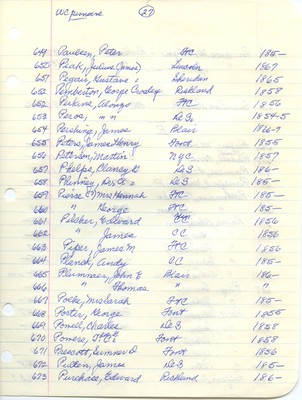 WC pioneers
27
649 Paulsen, Peter FtC 185-
650 Peak, Julius (James) Lincoln 1867
651 Pegair, Gustave Sheridan 1865
652 Pemberton, George Crosley Richland 1858
652 Perkins, Alonzo FtC 1856
653 Peroe, " " DeS. 1854-5
654 Pershing, James Blair 1866-7
655 Peters, James Henry Font 1855
656 Peterson, Martin NYC 1857
657 Phelps, Clancy G DeS 186-
658 Phinney, DeS 185-
659 Pierce Mrs Hannah FtC 185-
660 " George FtC 185-
661 Pilcher, Edward 1856
662 " James CC 1856
663 Piper, James M. FtC 1856
664 Plench, Andy CC 185-
665 Plummer, John E Blair 186-
666 " Thomas " "
667 Poeke, Mrs Sarah FtC 185-
668 Porter, George Font 1855
669 Powell, Charles DeS 1858
670 Font 1858
671 Prescott, Sumner D. Font 1856
672 James DeS 185-
673 Purchase, Edward Richland 186-